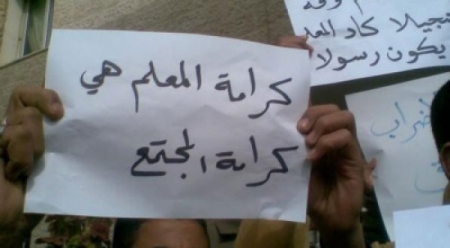 كرامة المعلم هي
كرامة المجتمع
وفه
تبجيلا كاد المعلم
يكون رسولا
اضراب